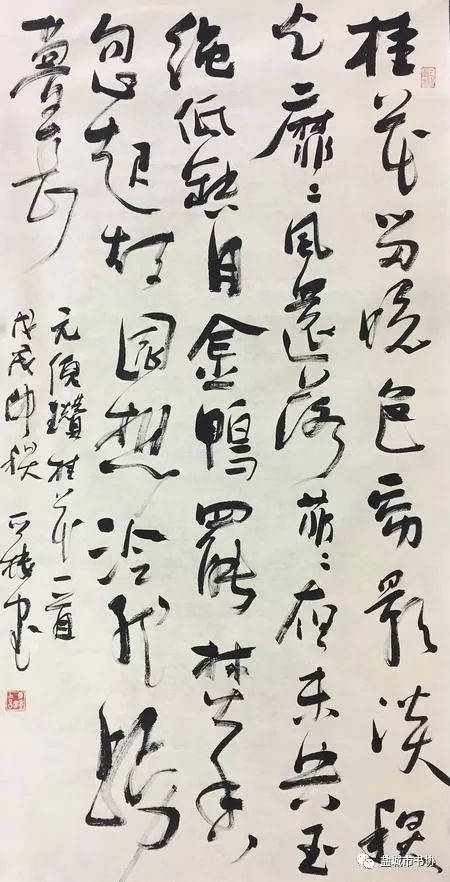 桂花留晚色帘影淡秋
光靡靡風還落菲菲夜未央玉
繩低缺月金鴨罷焚香
忽起故園想泠然歸
夢長
元倪瓚桂花一首
戊戌仲秋
盐城市书协